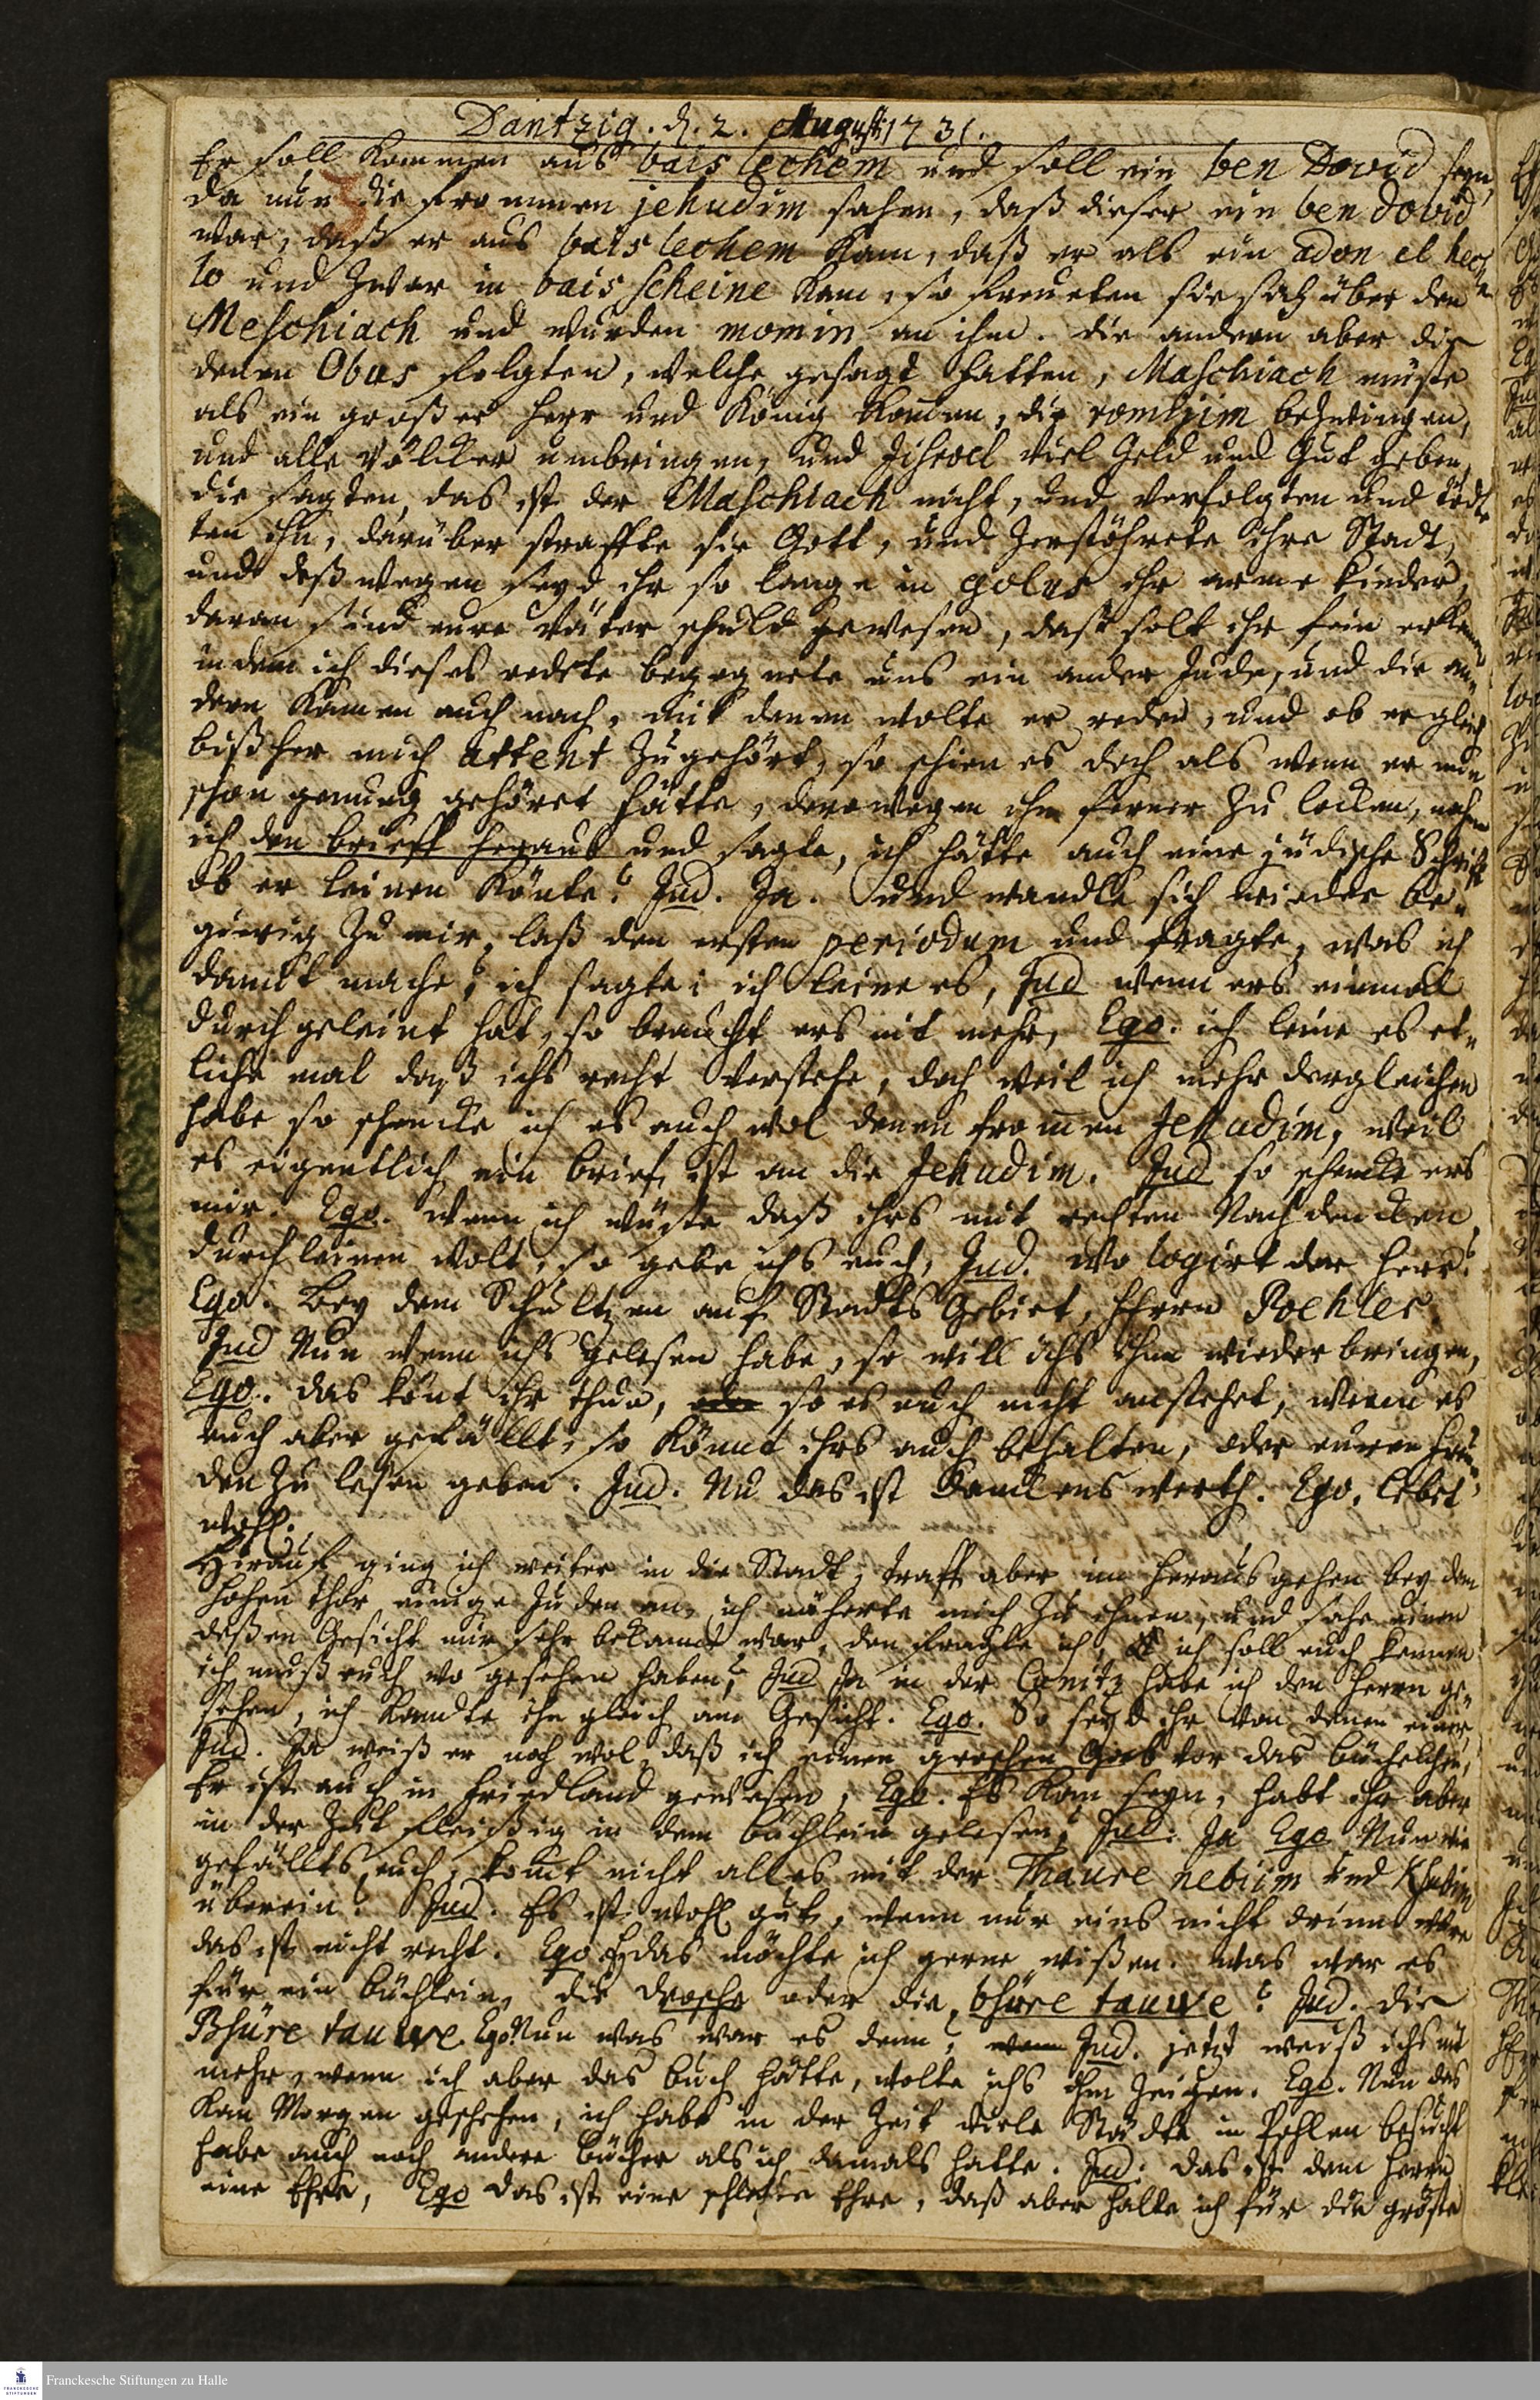 Dantzig. d. 2. August: 1731.
Er soll kommen aus bais lechem und soll ein ben Dovid seyn,
da nun die frommen jehudim sahen, daß dieser ein ben dovid
war, daß er aus bais lechem kam, daß er als ein adon el hech
lo und zwar in bais scheine kam, so freueten sie sich über den
Meschiach und wurden momin an ihm. die andern aber die
denen Obus folgten, welche gesagt hatten, Maschiach müste
als ein großer Herr und König kommen, die romijim bezwingen,
und alle völcker umbringen, und Jisroel viel Geld und Gut geben,
die sagten, das ist der Maschiach nicht, und verfolgten und tödt
ten ihn, darüber straffte sie Gott, und zerstöhrete ihre Stadt,
und deßwegen seyd ihr so lange in golus ihr arme kinder,
daran sind eure Väter schuld gewesen, daß solt ihr fein erkennen
in dem ich dieses redete begegnete uns ein ander Jude, und die an„
dern kamen auch nach, mit denen wolte er reden, und ob er gleich
bißher mich attent zugehört, so schien es doch als wenn er nun
schon genung gehöret hätte, derowegen ihn ferner zu locken, nahm
ich den brieff heraus und sagte, ich hätte auch eine jüdische Schrifft
ob er leinen könte? Jud. Ja. und wandte sich wieder be„
gierig zu mir, laß den ersten periodum und fragte, was ich
damit mache, ich sagte: ich leine es, Jud wenn ers einmal
durchgeleint hat, so braucht ers nit mehr, Ego. ich leine es et„
liche mal daß ichs recht verstehe, doch weil ich mehr dergleichen
habe so schencke ich es auch wol denen frommen Jehudim, weil
es eigentlich ein brief ist an die Jehudim. Jud so schencke ers
mir. Ego. wenn ich wüste daß ihrs mit rechten Nachdencken
durchleinen wolt, so gebe ichs euch, Jud. wo logirt der Herr?
Ego. Bey dem Schultzen auf Stadts Gebiet, Herrn Poehler.
Jud Nun wenn ichs gelesen habe, so will ichs ihm wiederbringen,
Ego. das könt ihr thun, so es euch nicht anstehet, wenn es
euch aber gefällt, so könnt ihrs auch behalten, oder euren Freun„
den zu lesen geben. Jud. Nu das ist danckens werth. Ego. Lebet
wohl.
Hirauf ging ich weiter in die Stadt, traff aber im herausgehen bey dem
hohen thor einige Juden an, ich näherte mich zu ihnen, und sahe einen
deßen Gesicht mir sehr bekant war, den fragte ich, ich soll euch kennen
ich muß euch wo gesehen haben, Jud Ja in der Conitz habe ich den Herrn ge„
sehen, ich kandte ihn gleich am Gesicht. Ego. So seyd ihr von denen einer,
Jud. Ja weiß er noch wol, daß ich einen groschen Gab vor das büchelchen,
Er ist auch in Friedland gewesen, Ego. Es kan seyn, habt ihr aber
in der Zeit fleißig in dem büchlein gelesen, Jud. Ja Ego Nun wie
gefällts euch, komt nicht alles mit der Thaure nebiim und Khsubim
überein? Jud. Es ist wohl gut, wenn nur eins nicht drinn wäre
das ist nicht recht. Ego Ey das möchte ich gerne wißen. was war es
für ein büchlein, die drosche oder die bsüre tauwe? Jud. die
Bsüre tauwe. Ego. Nun was war es denn, Jud. jetzt weiß ichs nit
mehr, wenn ich aber das buch hätte, wolte ichs ihm zeigen. Ego. Nun das
kan Morgen geschehen, ich habe in der Zeit viele Städte in Pohlen besucht
habe auch noch andere bücher als ich damals hatte. Jud: das ist dem Herrn
eine Ehre, Ego das ist eine schlechte Ehre, daß aber halte ich für die gröste
Franckesche Stiftungen zu Halle